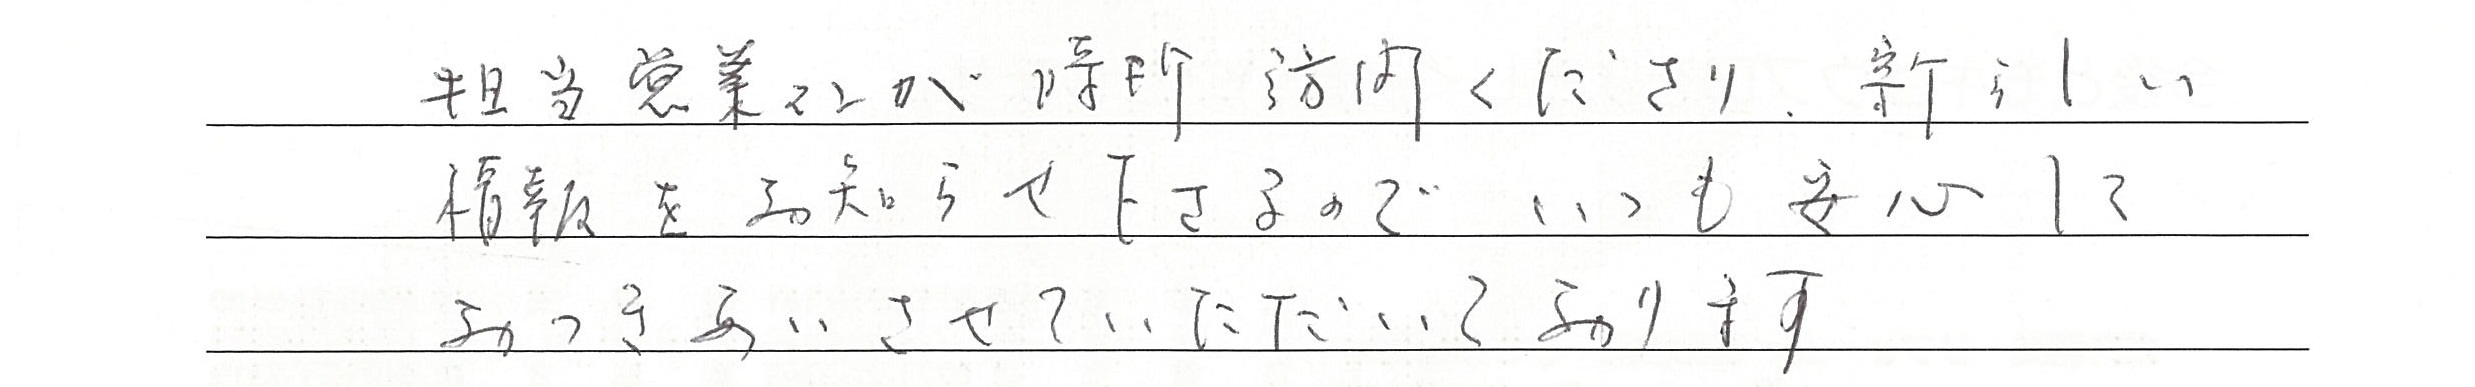 担当営業マンが時折訪問くださり、新らしい
情報をお知らせ下さるのでいつも安心して
おつきあいさせていただいております